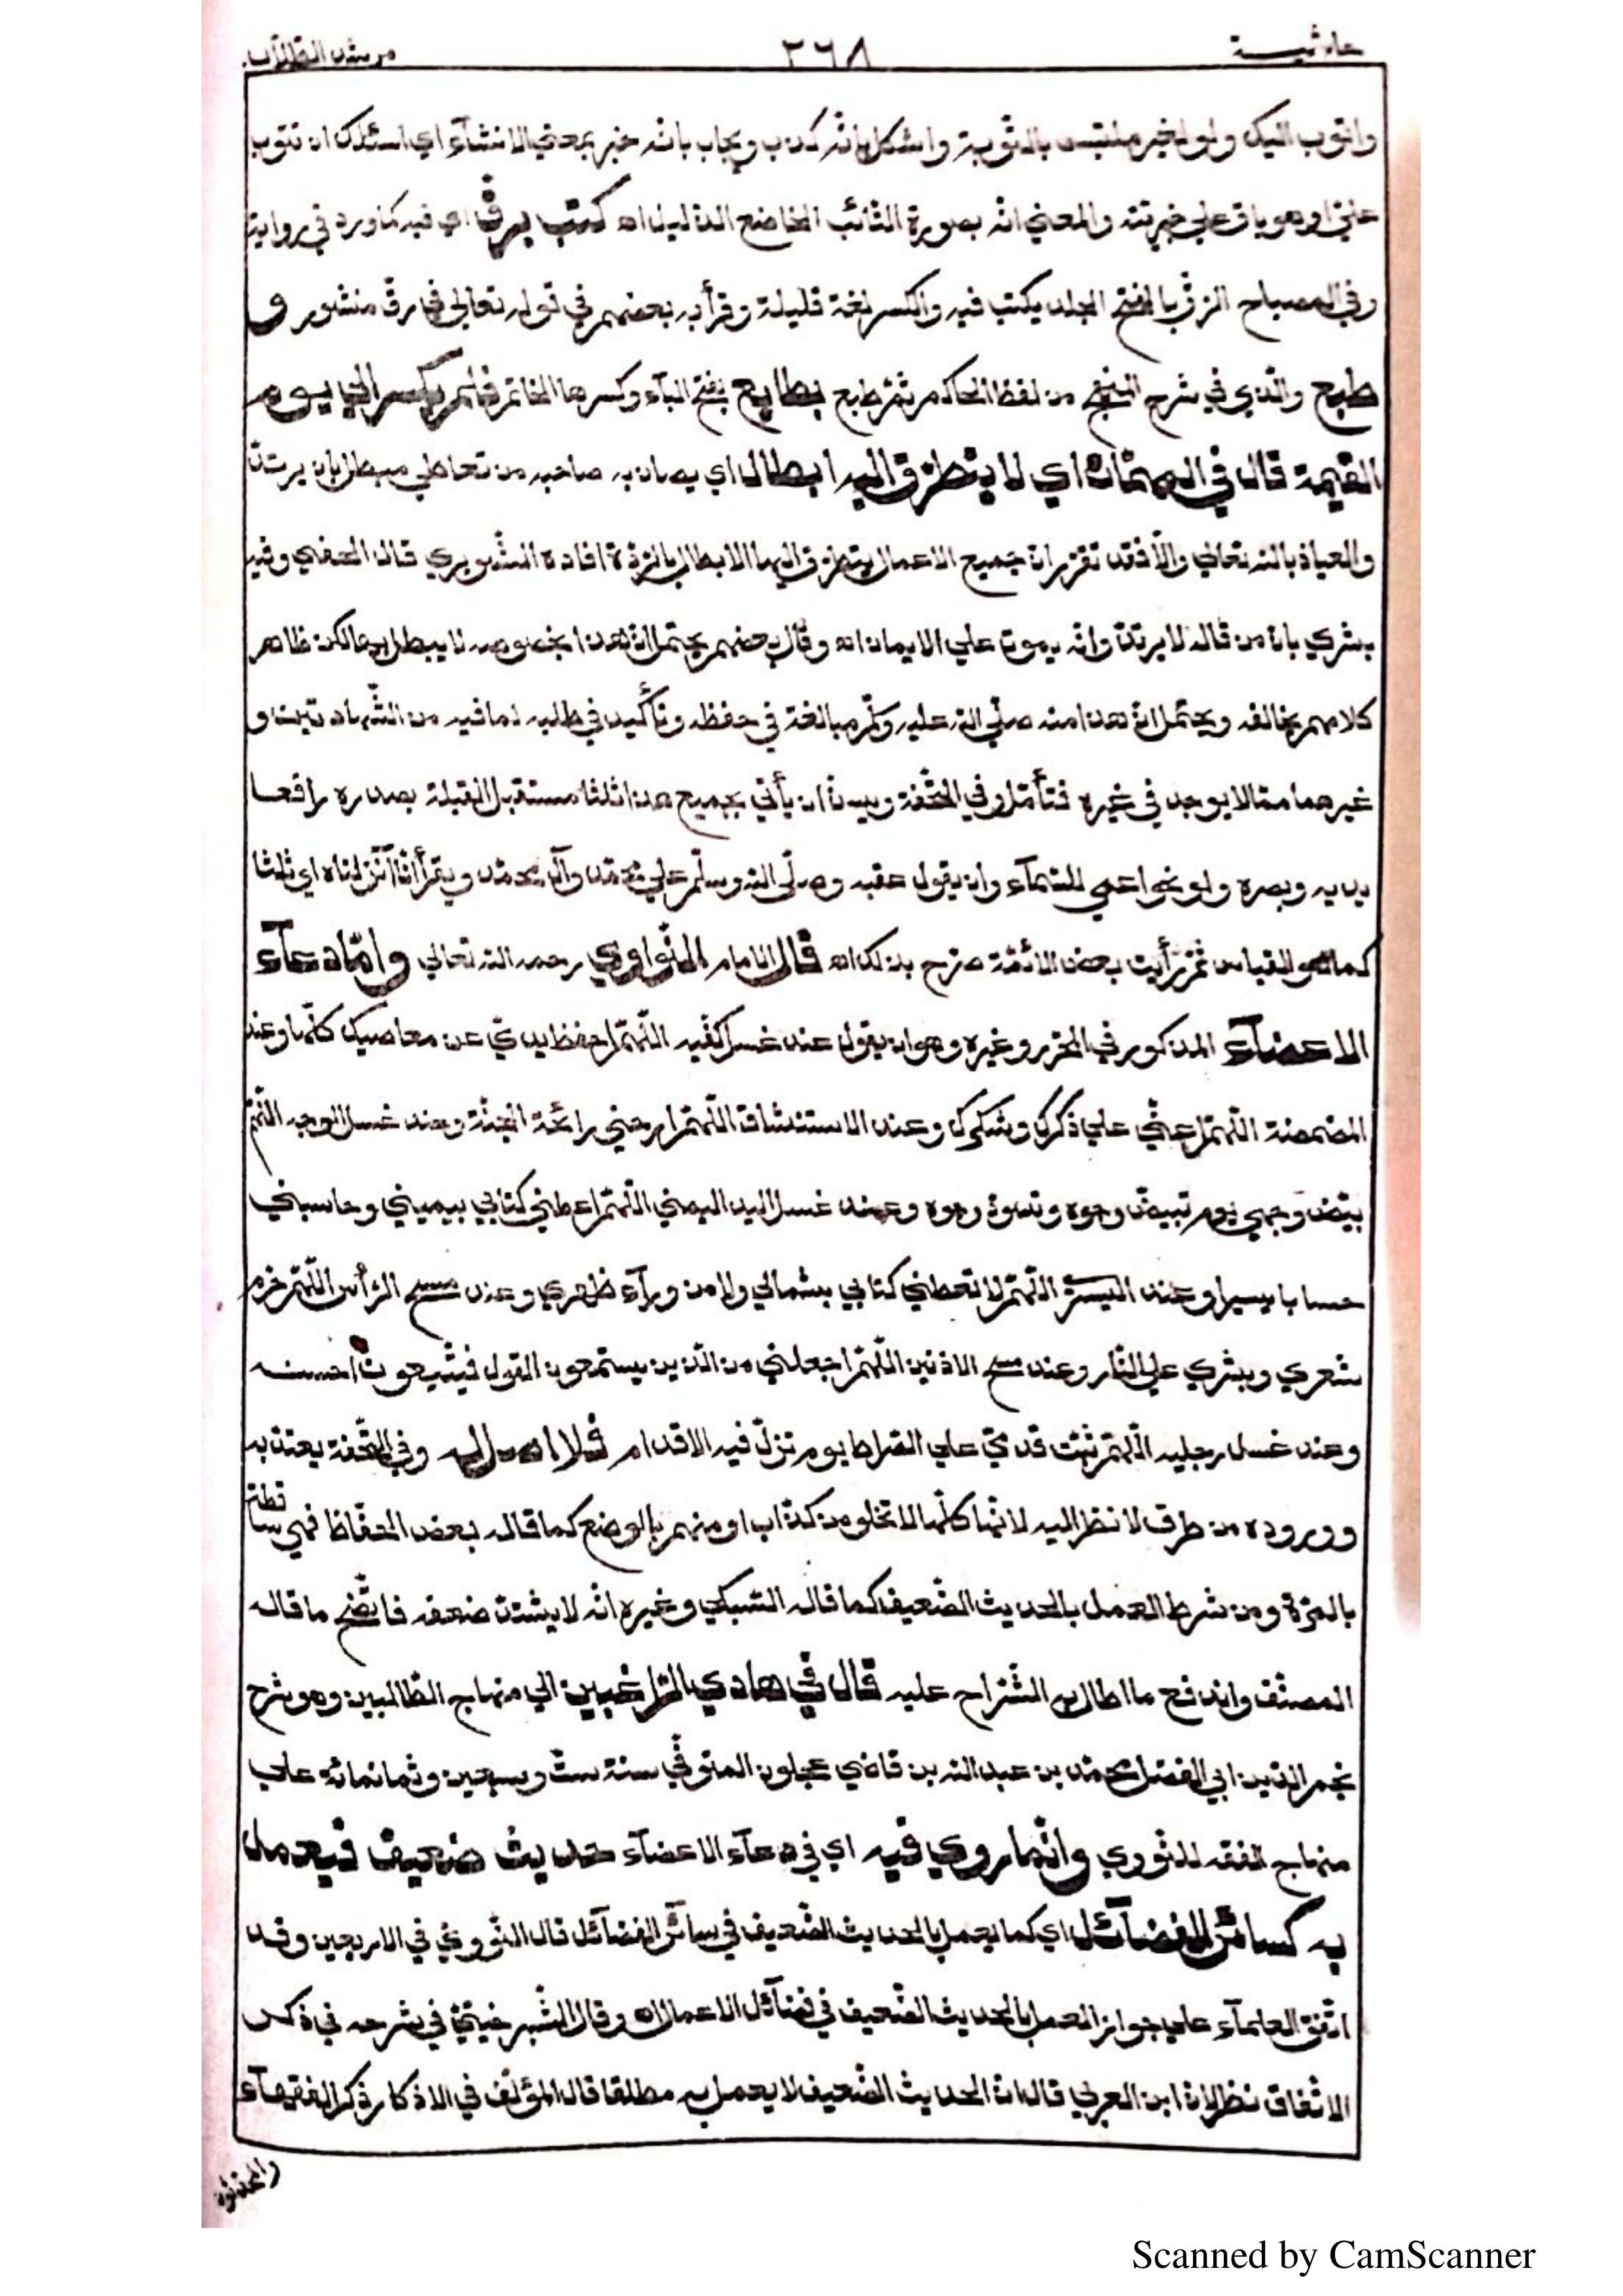 حاشية ٢٦٨ مرشد الطلاب
واتوب اليك ولو لغير ملتبس بالتّوبة واشكل بانّه كذب ويجاب بانّه خبر بمعني الانشآء اي اسئلك ان تتوب
عليّ او هو باق علي خبريّته والمعني انّه بصورة التّائب الخاضع الذّليل اه كتب برقّ اي فيه كما ورد في رواية
وفي المصباح الرّقّ بالفتح الجلد يكتب فيه والكسر لغة قليلة وقرأ به بعضهم في قوله تعالي في رقّ منشور و
طبع والّذي في شرح المنهج من لفظ الحاكم ثمّ طبع بطابع بفتح البآء وكسرها الخاتم فلم يكسر الي يوم
القيمة قال في المهمّات اي لا يتطرّق اليه ابطال اي يصان به صاحبه من تعاطي مبطل بان يرتدّ
والعياذ بالله تعالي والّا فقد تقرّر انّ جميع الاعمال يتطرّق اليها الابطال بالرّدّة افاده الشّوبري قال الحفني وفيه
بشري بانّ من قاله لا يرتدّ وانّه يموت علي الايمان اه وقال بعضهم يحتمل انّ هذا بخصوصه لا يبطل بها لكن ظاهر
كلامهم يخالفه ويحتمل انّ هذا منه صلّي الله عليه وسلّم مبالغة في حفظه وتأكيد في طلبه لما فيه من الشّهادتين و
غيرهما ممّا لا يوجد في غيره فتأمّل وفي التّحفة ويسنّ ان يأتي بجميع هذا ثلثا مستقبل القبلة بصدره رافعا
يديه وبصره ولو نحو اعمي للسّمآء وان يقول عقبه وصلّي الله وسلّم علي محمّد وآل محمّد ويقرأ انّا أنزلناه اي ثلثا
كما هو القياس ثمّ رأيت بعض الائمّة صرّح بذلك اه قال الامام النّواوي رحمه الله تعالي وامّا دعآء
الاعضآء المذكور في المحرّر وغيره وهو ان يقول عند غسل كفّيه اللّهمّ احفظ يديّ عن معاصيك كلّها وعند
المضمضة اللّهمّ اعنّي علي ذكرك وشكرك وعند الاستنشاق اللّهمّ ارحني رائحة الجنّة وعند غسل الوجه اللّهمّ
بيّض وجهي يوم تبيضّ وجوه وتسودّ وجوه وعند غسل اليد اليمني اللّهمّ اعطني كتابي بيميني وحاسبني
حسابا يسيرا وعند اليسري اللّهمّ لا تعطني كتابي بشمالي ولا من ورآء ظهري وعند مسح الرّأس اللّهمّ حرّم
شعري وبشري علي النّار وعند مسح الاذنين اللّهمّ اجعلني من الّذين يستمعون القول فيتّبعون احسنه
وعند غسل رجليه اللّهمّ ثبّت قدميّ علي الصّراط يوم تزلّ فيه الاقدام فلا اصل له وفي التّحفة يعتدّ به
ووروده من طرق لا نظر اليه لانّها كلّها لا تخلو من كذّاب او متّهم بالوضع كما قاله بعض الحفّاظ فهي ساقطة
بالمرّة ومن شرط العمل بالحديث الضّعيف كما قاله السّبكي وغيره انّه لا يشتدّ ضعفه فاتّضح ما قاله
المصنّف واندفع ما اطال به الشّراح عليه قال في هادي الرّاغبين الي منهاج الطّالبين وهو شرح
نجم الدّين ابي الفضل محمّد بن عبد الله بن قاضي عجلون المتوفّي سنة ستّ وسبعين وثمانمائة علي
منهاج الفقه للنّووي وانّما روي فيه اي في دعآء الاعضآء حديث ضعيف فيعمل
به كسائر الفضآئل اي كما يعمل بالحديث الضّعيف في سآئر الفضآئل قال النّووي في الاربعين وقد
اتّفق العلمآء علي جواز العمل بالحديث الضّعيف في فضآئل الاعمال اه وقال الشّبرخيتي في شرحه في ذكر
الاتّفاق نظر لانّ ابن العربي قال انّ الحديث الضّعيف لا يعمل به مطلقا قال المؤلّف في الاذكار ذكر الفقهآء
والمحدّثون
Scanned by CamScanner